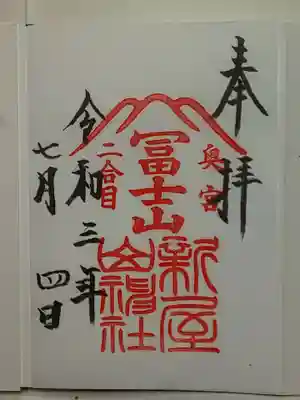 奉拝
奥宮
冨士山
新屋
山神社
二會目
令和三年
七月四日